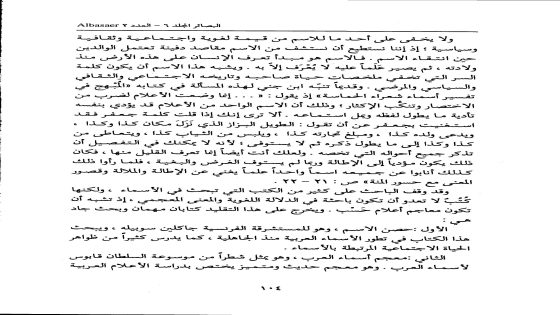 البصائر المجلد ٦ - العدد ٢ Albasaer
ولا يخفى على أحد ما للاسم من قيمة لغوية واجتماعية وثقافية
وسياسية ؛ إذ إننا نستطيع أن نستشف من الاسم مقاصد دفينة تحتمل الوالدين
حين انتقاء الاسم . فالاسم هو مبدأ تعرف الإنسان على هذه الأرض منذ
ولادته ، ثم يصير علماً عليه لا يُعْرَف إلاّ به . ويشبه هذا الاسم أن يكون كلمة
السر التي تضفي ملخصات حياة صاحبه وتاريخه الاجتماعي والثقافي
والسياسي والمرضي . وقديماً تنبّه ابن جني لهذه المسألة في كتابه «المُبْهج في
تفسير أسماء شعراء الحماسة» إذ يقول : « ... فما وضعت الأعلام لضرب من
الاختصار وتنكّب الإكثار؛ وذلك أن الاسم الواحد من الأعلام قد يؤدي بنفسه
تأدية ما يطول لفظه ويمل استماعه . ألا ترى إنك إذا قلت كلمة جعفر فقد
استغنيت بجعفر عن أن تقول : الطويل البزاز الذي نَزَلَ مكان كذا وكذا ،
ويدعى ولده كذا ، ومبلغ تجارته كذا ، ويلبس من الثياب كذا ، ويتعاطى من
كذا وكذا إلى ما يطول ذكره ثم لا يستوفى ، لأنه لا يمكنك في التفصيل أن
تذكر جميع أحواله التي تخصه . ولعلك أنت أيضاً إنما تعرف القليل منها ، فكان
ذلك يكون مؤدياً إلى الإطالة وربما لم يستوف الغرض والبغية ، فلما رأوا ذلك
كذلك أنابوا عن جميعه اسماً واحداً علماً يغني عن الإطالة والملالة وقصور
المعنى مع حسور المنة» ص : ٢١ - ٢٢ .
وقد وقف الباحث على كثير من الكتب التي تبحث في الأسماء ، ولكنها
كُتُبٌ لا تعدو أن تكون باحثة في الدلالة اللغوية والمعنى المعجمي ، إذ تشبه أن
تكون معاجم أعلام حَسْب . ويخرج على هذا التقليد كتابان مهمان وبحث جاد
هي :
الأول : حصن الاسم ، وهو للمستشرقة الفرنسية جاكلين سوبيله ، ويبحث
هذا الكتاب في تطور الأسماء العربية منذ الجاهلية ، كما يدرس كثيراً من ظواهر
الحياة الاجتماعية المرتبطة بالأسماء .
الثاني : معجم أسماء العرب ، وهو يمثل شطراً من موسوعة السلطان قابوس
لأسماء العرب . وهو معجم حديث ومتميز يختص بدراسة الأعلام العربية
١٠٤